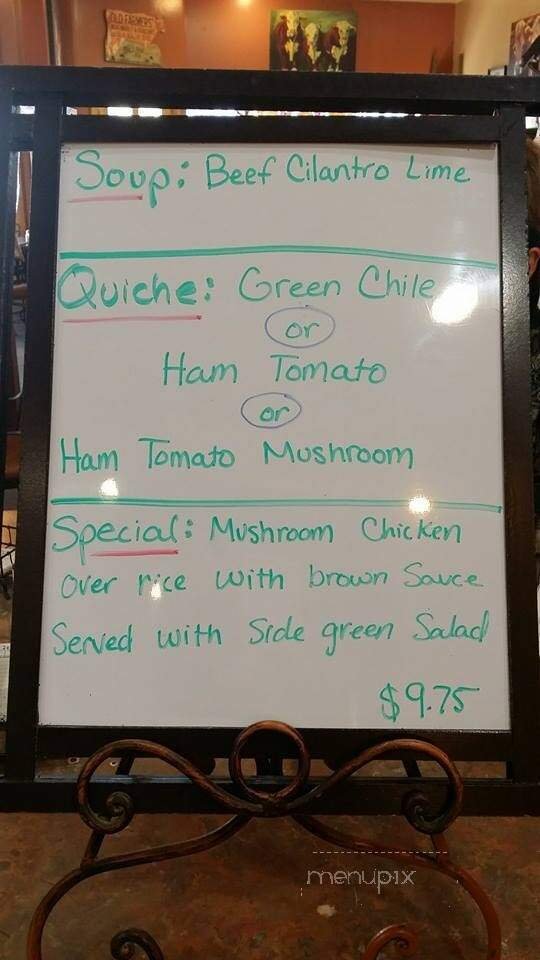 OLD FARMERS
Soup: Beef Cilantro Lime
Quiche: Green Chile
or
Ham Tomato
or
Ham Tomato Mushroom
Special: Mushroom Chicken
over rice with brown Sauce
Served with Side green Salad
$9.75
menupix